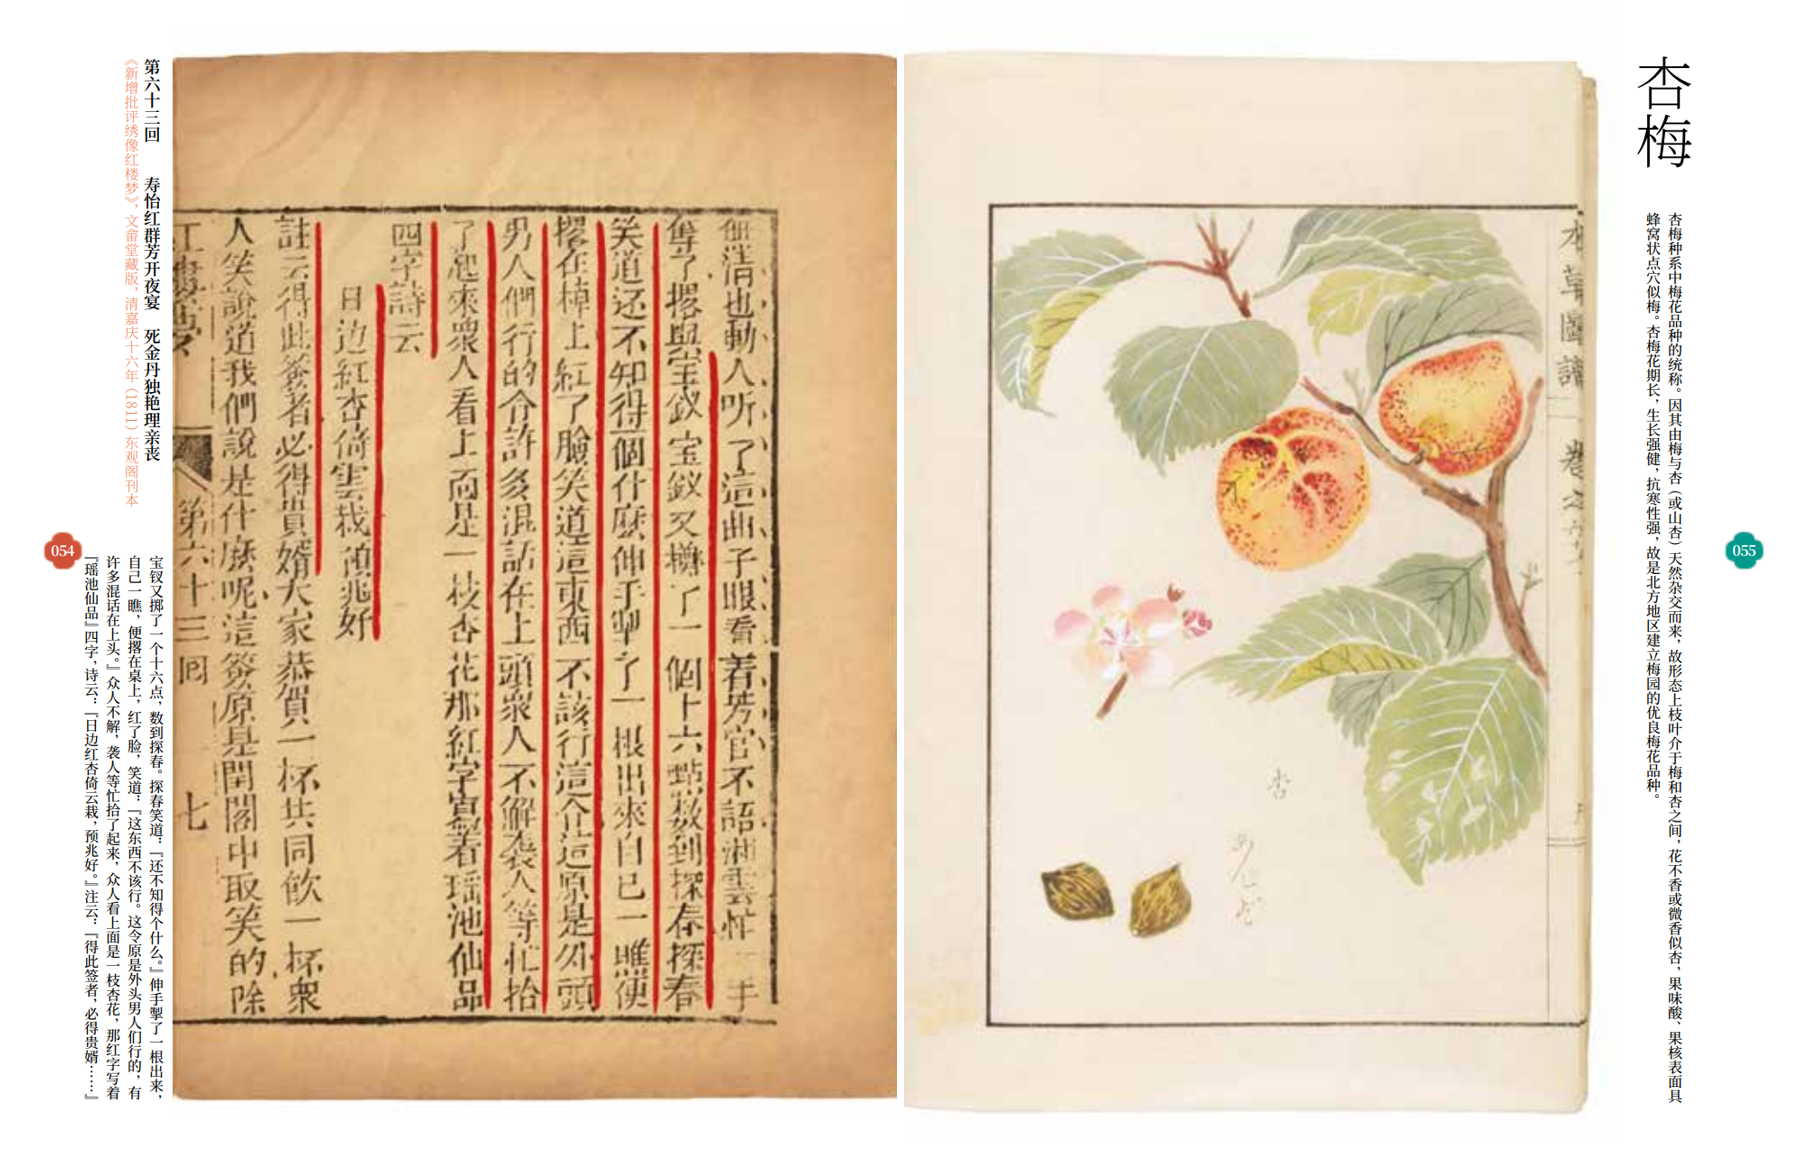 第六十三回　寿怡红群芳开夜宴　死金丹独艳理亲丧
《新增批评绣像红楼梦》，文畲堂藏版，清嘉庆十六年（1811）东观阁刊本
宝钗又掷了一个十六点，数到探春。探春笑道：『还不知得个什么。』伸手掣了一根出来，
自己一瞧，便撂在桌上，红了脸，笑道：『这东西不该行。这令原是外头男人们行的，有
许多混话在上头。』众人不解，袭人等忙拾了起来，众人看上面是一枝杏花，那红字写着
『瑶池仙品』四字，诗云：『日边红杏倚云栽，预兆好。』注云：『得此签者，必得贵婿……』
054
清也動人听了這曲子眼看着芳官不語湘雲忙一手
奪了撂與宝釵宝釵又擲了一個十六點数到探春探春
笑道还不知得個什麽伸手掣了一根出來自已一瞧便
撂在棹上紅了臉笑道這東西不該行這个這原是外頭
男人們行的令許多混話在上頭衆人不解襲人等忙拾
了起來衆人看上面是一枝杏花那紅字寫着瑶池仙品
四字詩云
日边紅杏倚雲栽預兆好
註云得此簽者必得貴婿大家恭賀一杯共同飲一杯衆
人笑說道我們說是什麽呢這簽原是閨閣中取笑的除
第六十三回　七
杏梅
杏梅种系中梅花品种的统称。因其由梅与杏（或山杏）天然杂交而来，故形态上枝叶介于梅和杏之间，花不香或微香似杏，果味酸、果核表面具
蜂窝状点穴似梅。杏梅花期长，生长强健，抗寒性强，故是北方地区建立梅园的优良梅花品种。
055
本草圖譜　卷之六
杏